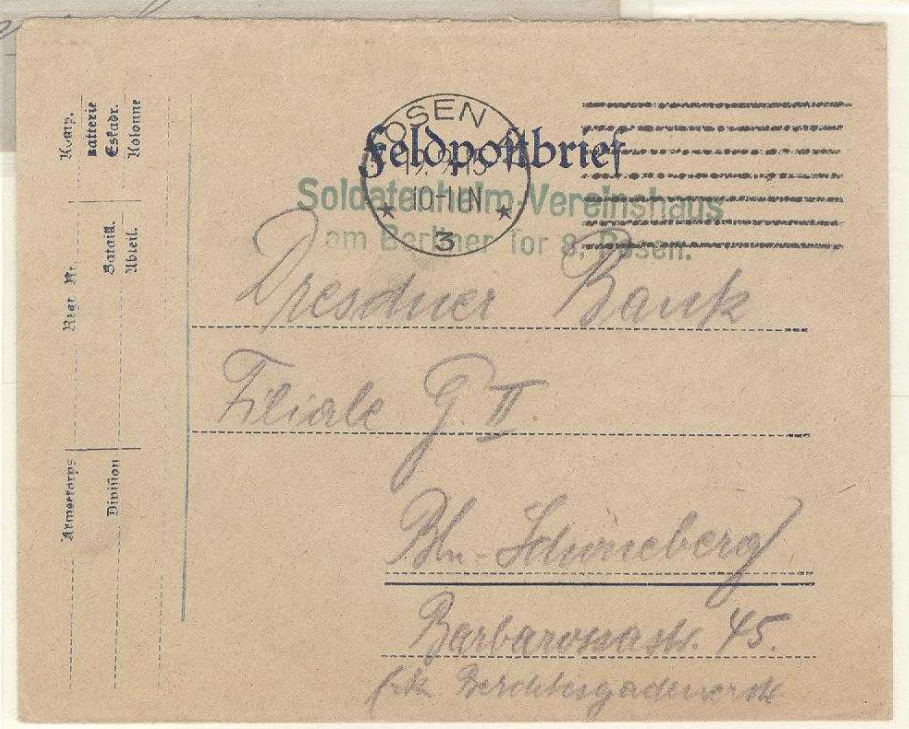 Komp.
Batterie
Eskadr.
Kolonne
Regt. Nr.
Bataill.
Abteil.
Armeekorps
Division
POSEN
Feldpostbrief
19.9.15
10-11N
3
Soldatenheim-Vereinshaus
am Berliner Tor 8, Posen.
Dresdner Bank
Filiale G. II.
Bln-Schöneberg
Barbarossastr. 45.